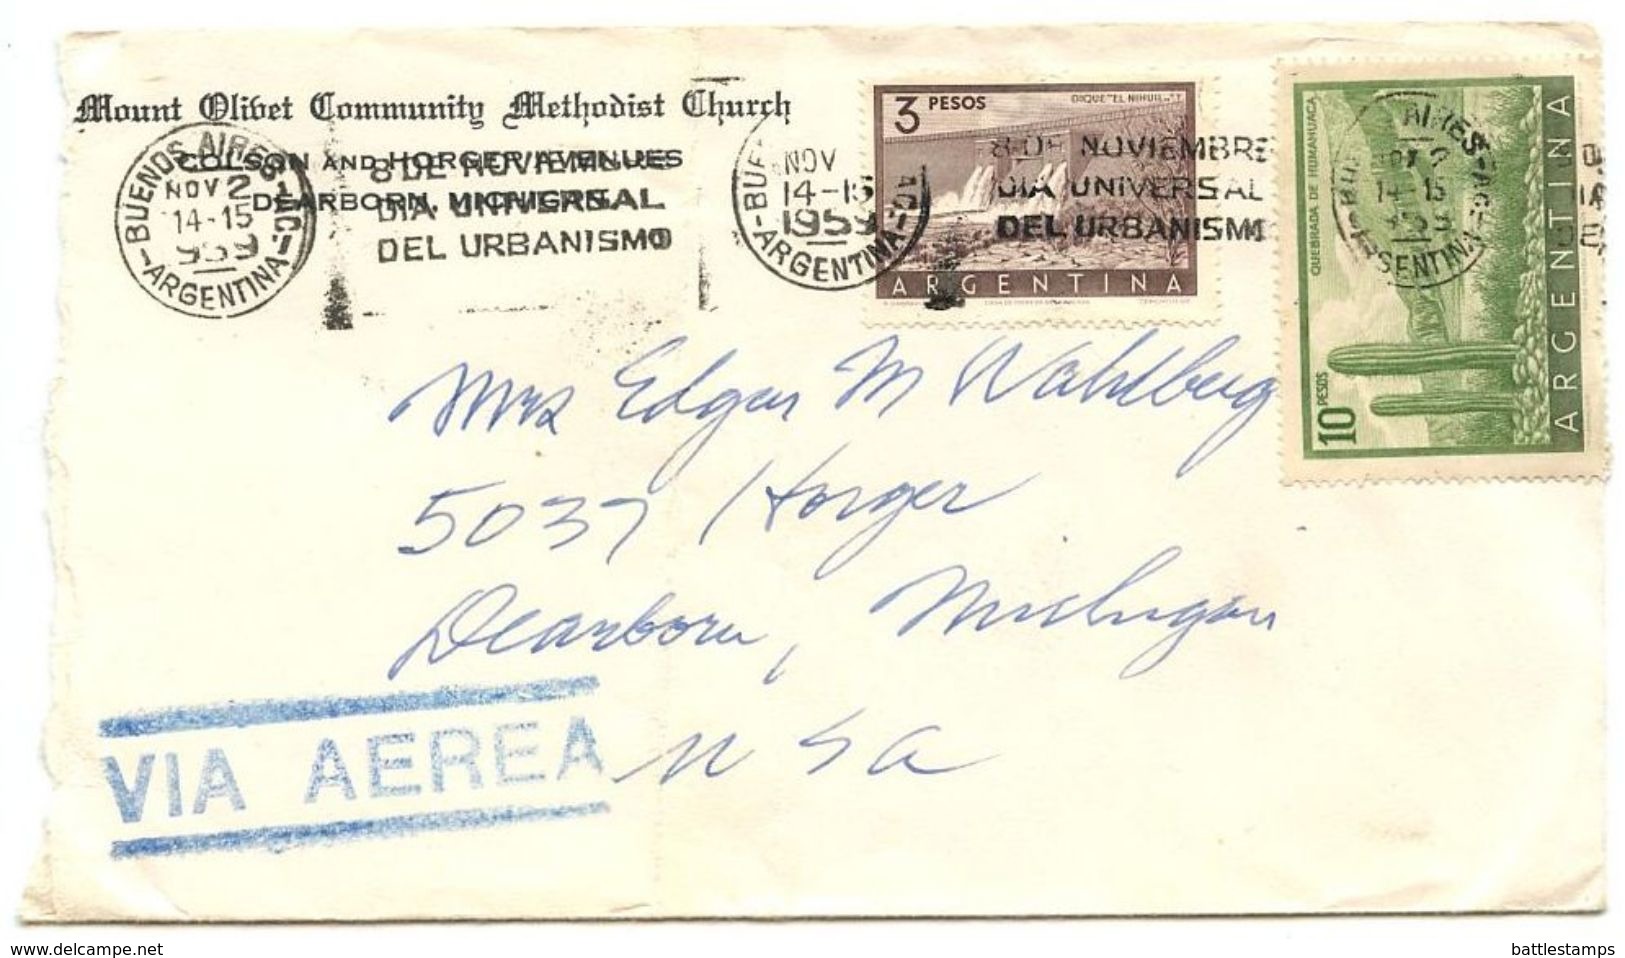 Mount Olivet Community Methodist Church
COLSON AND HORGER AVENUES
DEARBORN, MICHIGAN
BUENOS AIRES
NOV 2
14-15
959
ARGENTINA
8 DE NOVIEMBRE
DIA UNIVERSAL
DEL URBANISMO
NOV
14-15
1959
ARGENTINA
8 DE NOVIEMBRE
DIA UNIVERSAL
DEL URBANISMO
3 PESOS
DIQUE "EL NIHUIL"
ARGENTINA
AIRES
14-15
QUEBRADA DE HUMAHUACA
10 PESOS
ARGENTINA
Mrs Edgar M Wahlberg
5037 Horger
Dearborn, Michigan
USA
VIA AEREA
www.delcampe.net
battlestamps